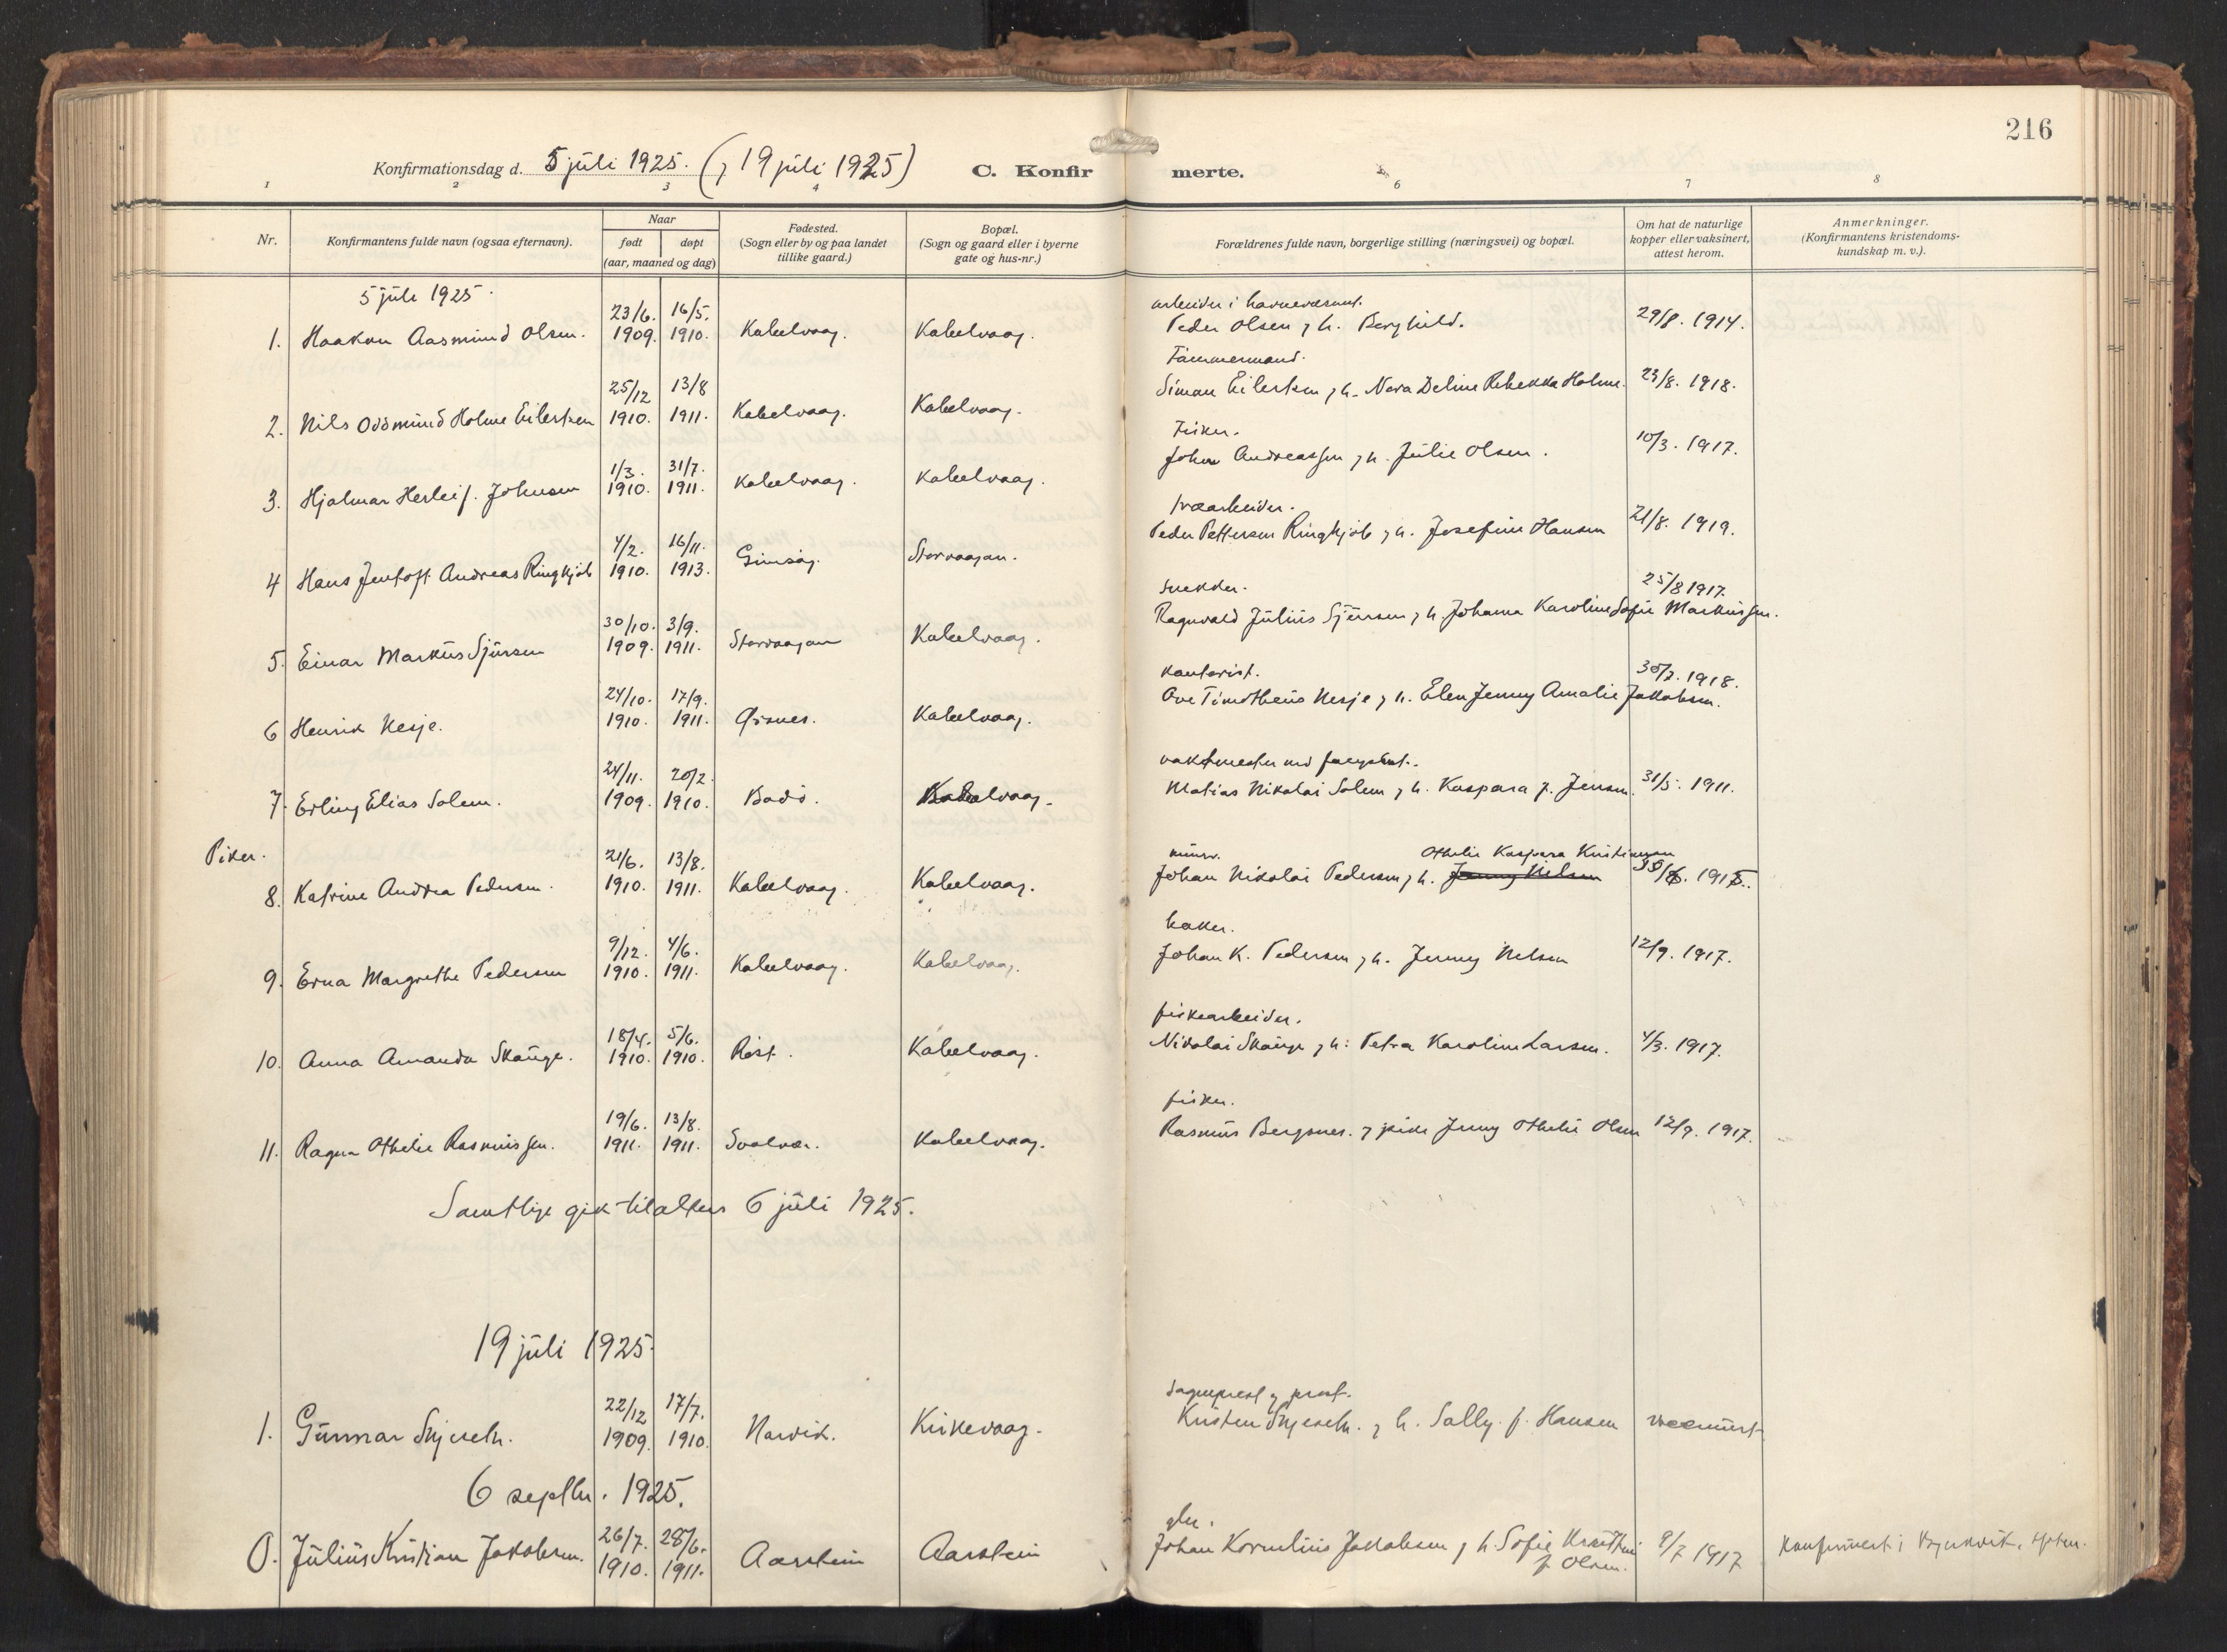 216
Konfirmationsdag d. 5 juli 1925. (, 19 juli 1925)
C. Konfirmerte.
1 2 3 4 6 7 8
Nr.
Konfirmantens fulde navn (ogsaa efternavn).
Naar
født døpt
(aar, maaned og dag)
Fødested.
(Sogn eller by og paa landet
tillike gaard.)
Bopæl.
(Sogn og gaard eller i byerne
gate og hus-nr.)
Forældrenes fulde navn, borgerlige stilling (næringsvei) og bopæl.
Om hat de naturlige
kopper eller vaksinert,
attest herom.
Anmerkninger.
(Konfirmantens kristendoms-
kundskap m. v.).
5 juli 1925.
23/6. 16/5. arbeider i havnevæsenet.
1. Haakon Aasmund Olsen. 1909. 1910. Kabelvaag. Kabelvaag. Peder Olsen , h. Berghild. 29/8. 1914.
25/12 13/8 Tømmermand.
2. Nils Oddmund Holme Eilertsen 1910. 1911. Kabelvaag. Kabelvaag. Simon Eilertsen , h. Nora Deline Rebekka Holme. 23/8. 1918.
1/3. 31/7. Fisker.
3. Hjalmar Herleif Johnsen 1910. 1911. Kabelvaag. Kabelvaag. Johan Andreassen , h. Julie Olsen. 10/3. 1917.
4/2. 16/11.
4 Hans Jentoft Andreas Ringkjøb 1910. 1913. Gimsøy. Storvaagan. Peder Pettersen Ringkjøb , h. Josefine Hansen 21/8. 1919.
30/10. 3/9. snekker. 25/8 1917.
5. Einar Markus Sjursen 1909. 1911. Storvaagan Kabelvaag. Ragnvald Julius Sjursen , h. Johanna Karoline Sofie Markussen.
24/10. 17/9. kontorist. 30/7. 1918.
6 Henrik Nesje. 1910. 1911. Kabelvaag. Ove Timotheus Nesje , h. Elen Jenny Amalie Jakobsen.
24/11. 20/2. vaktmester ved
7. Erling Elias Solem. 1909. 1910. Bodø. Kabelvaag. Matias Nikolai Solem , h. Kaspara f. Jensen. 31/5. 1911.
Piker.
21/6. 13/8. murer. Othelie Kaspara Kristiansen
8. Katrine Andrea Pedersen. 1910. 1911. Kabelvaag. Kabelvaag. Johan Nikolai Pedersen , h. Jenny Nelsen
9/12. 4/6. baker.
9. Erna Margrethe Pedersen 1910. 1911. Kabelvaag. Kabelvaag. Johan K. Pedersen , h. Jenny Nelsen 12/9. 1917.
18/4. 5/6. fiskearbeider.
10. Anna Amanda Skauge. 1910. 1910. Røst. Kabelvaag. Nikolai Skauge , h: Petra Karoline Larsen. 4/3. 1917.
19/6. 13/8. fisker.
11. Ragna Othelie Rasmussen. 1911. 1911. Svolvær. Kabelvaag. Rasmus Bergsnes. , pike Jenny Othelie Olsen 12/9. 1917.
Samtlige gik til alters 6 juli 1925.
19 juli 1925.
22/12 17/7. sogneprest og prost.
1. Gunnar Skjeseth. 1909. 1910. Narvik. Kirkevaag. Kristen Skjeseth. , h. Sally f. Hansen
6 septbr. 1925.
26/7. 28/6. gbr.
0. Julius Kristian Jakobsen. 1910. 1911. Aarstein Aarstein Johan Kornelius Jakobsen , h. Sofie f. Olsen. 9/7 1917 Konfirmert i